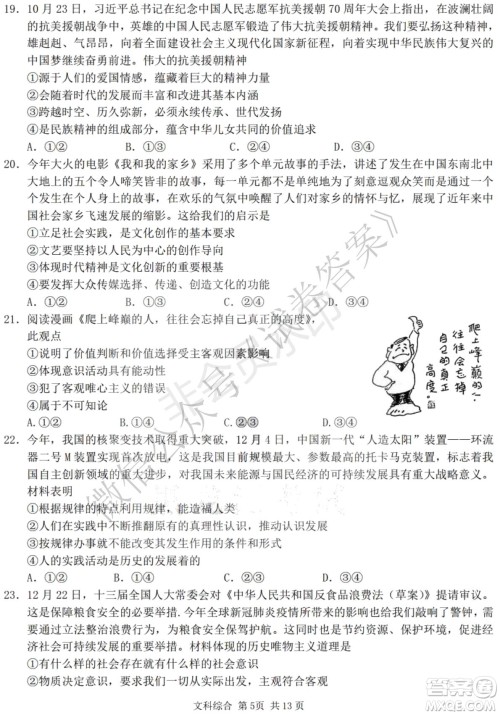 19. 10 月 23 日，习近平总书记在纪念中国人民志愿军抗美援朝 70 周年大会上指出，在波澜壮阔
的抗美援朝战争中，英雄的中国人民志愿军锻造了伟大抗美援朝精神。我们要弘扬这种精神，
雄赳赳、气昂昂，向着全面建设社会主义现代化国家新征程，向着实现中华民族伟大复兴的
中国梦继续奋勇前进。伟大的抗美援朝精神
①源于人们的爱国情感，蕴藏着巨大的精神力量
②会随着时代的发展而丰富，不断增添新的时代内涵
③跨越时空、历久弥新，感召世界、世代发扬
④是民族精神的组成部分，蕴含中华儿女共同的价值追求
A．①② B．①③ C．②④ D．③④
20. 今年大火的电影《我和我的家乡》采用了多个单元故事的手法，讲述了发生在中国东南北中
大地上的五个令人啼笑皆非的故事，每个故事都不是单纯地为了刻意逗观众笑，而是根据当
下时代最有可能发生的故事，在欢乐的气氛中慢慢地让观众深入思考，展现了近年来中
国社会家乡飞速发展的缩影。这给我们的启示是
①立足社会实践，是文化创新的根本途径
②文艺要坚持以人民为中心的创作导向
③体现时代精神是文化创新的重要根据
④要发挥大众传媒选择、传递、创造文化的功能
A．①② B．①④ C．②③ D．③④
21. 阅读漫画《爬上峰巅的人，往往会忘掉自己真正的高度》，
此观点
①说明了价值判断与价值选择受主客观因素影响
②体现意识活动具有主动创造性
③犯了客观唯心主义的错误
④属于不可知论
A.①② B．①④ C．②③ D．③④
爬上峰巅的人，
往往会忘掉
自己的真正
高度。
22. 今年，我国的核聚变技术取得重大突破，12 月 4 日，中国新一代“人造太阳”装置——环流
器二号 M 装置实现首次放电，这是我国目前规模最大、参数最高的托卡马克装置，标志着我
国自主创新领域的发展，对我国未来能源与国民经济的可持续发展具有重大战略意义。
材料表明
①根据规律的特点利用规律，能造福人类
②人们在实践中不断推翻原有的真理，推动认识发展
③技术发明有可能不断改变其发生作用的规律
④实践是认识发展的动力
A．①② B．①④ C．②③ D．③④
23. 12 月 22 日，十三届全国人大常委会对《中华人民共和国反食品浪费法（草案）》提请审议。
这是保障粮食安全的必要举措。今年全球新冠肺炎疫情所带来的影响更是给我们敲响了警钟，需
要通过立法整治浪费行为、树立文明新风，保障粮食安全。这同时也是节约资源、保护环境、促进经
济社会可持续发展的重要举措。材料体现的历史唯物主义道理是
①有什么样的社会存在就有什么样的社会意识
②有什么样的社会意识就有什么样的社会存在
文科综合 第 5页 共 13 页